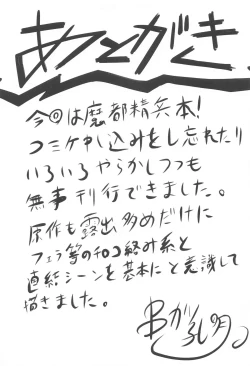 あとがき
今回は魔都精兵本!
コミケ申し込みをし忘れたり
いろいろやらかしつつも
無事刊行できました。
原作も露出多めだけに
フェラ等の
絡み系と
直結シーンを基本にと意識して
描きました。